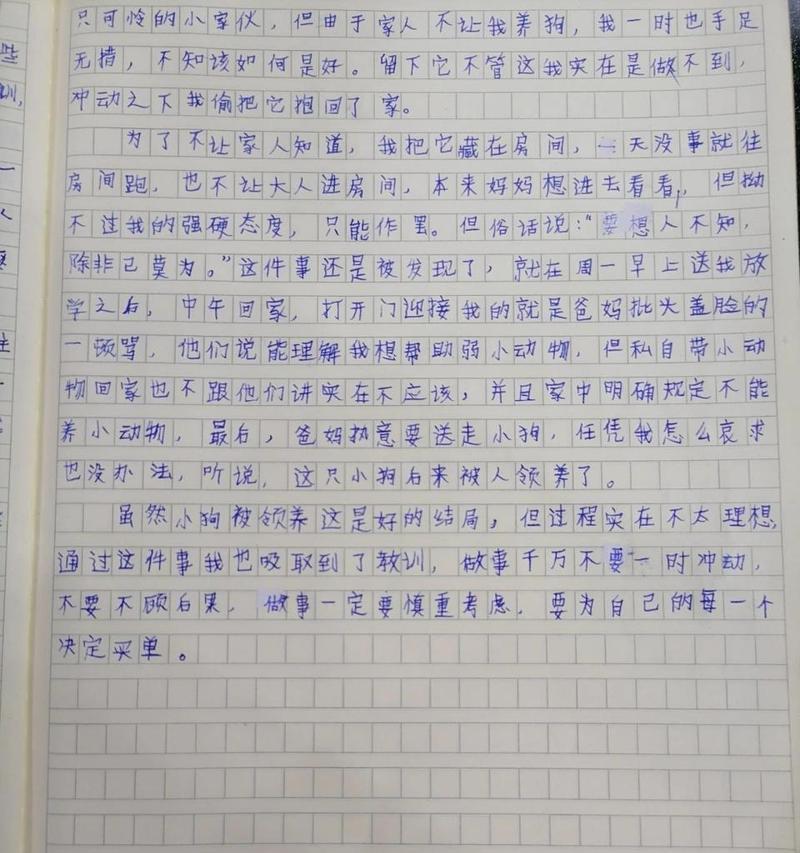 只可怜的小家伙，但由于家人不让我养狗，我一时也手足
无措，不知该如何是好。留下它不管这我实在是做不到，
冲动之下我偷把它抱回了家。
为了不让家人知道，我把它藏在房间，一天没事就往
房间跑，也不让大人进房间，本来妈妈想进去看看，但拗
不过我的强硬态度，只能作罢。但俗话说：“要想人不知，
除非己莫为。”这件事还是被发现了，就在周一早上送我放
学之后，中午回家，打开门迎接我的就是爸妈批头盖脸的
一顿骂，他们说能理解我想帮助弱小动物，但私自带小动
物回家也不跟他们讲实在不应该，并且家中明确规定不能
养小动物，最后，爸妈执意要送走小狗，任凭我怎么哀求
也没办法，听说，这只小狗后来被人领养了。
虽然小狗被领养这是好的结局，但过程实在不太理想，
通过这件事我也吸取到了教训，做事千万不要一时冲动，
不要不顾后果，做事一定要慎重考虑，要为自己的每一个
决定买单。
些
训，
一
人